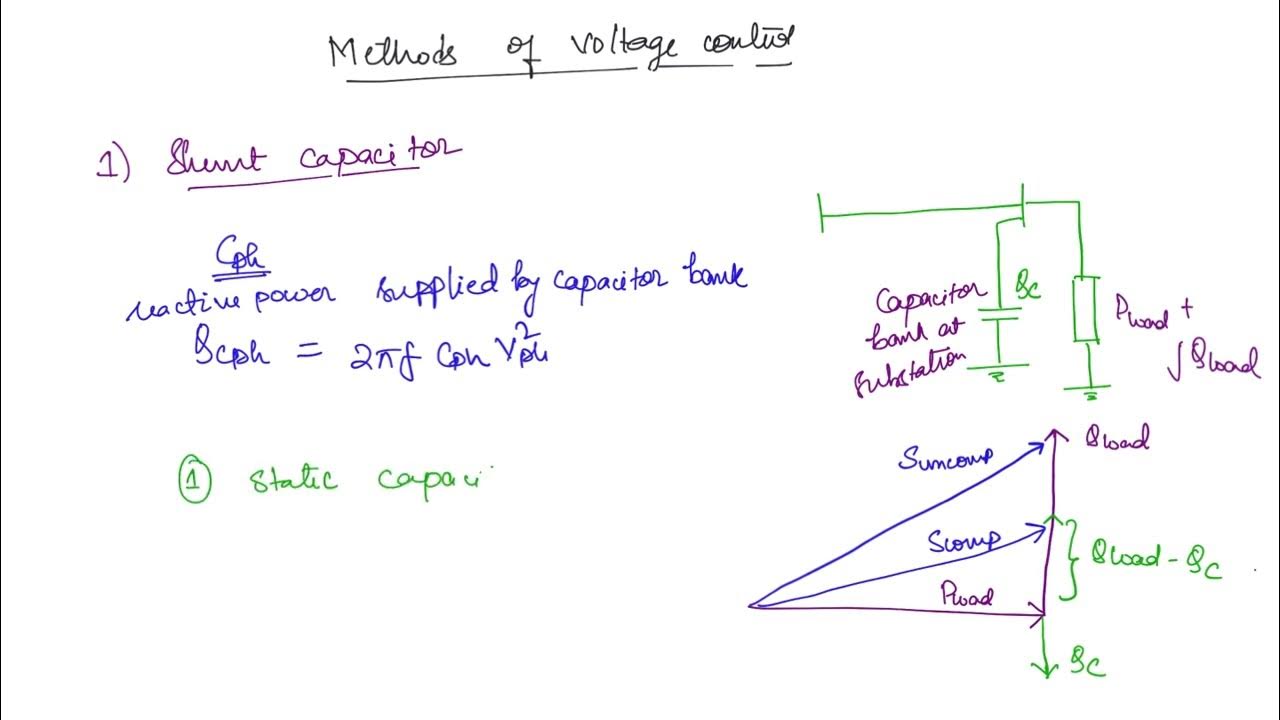 Methods of voltage control
1) Shunt capacitor
Cph
reactive power supplied by capacitor bank
QCph = 2πf Cph Vph²
1 static capaci
Capacitor
bank at
substation
QC
Pload +
JQload
Qload
Suncomp
Scomp
Pload
Qload - QC
QC